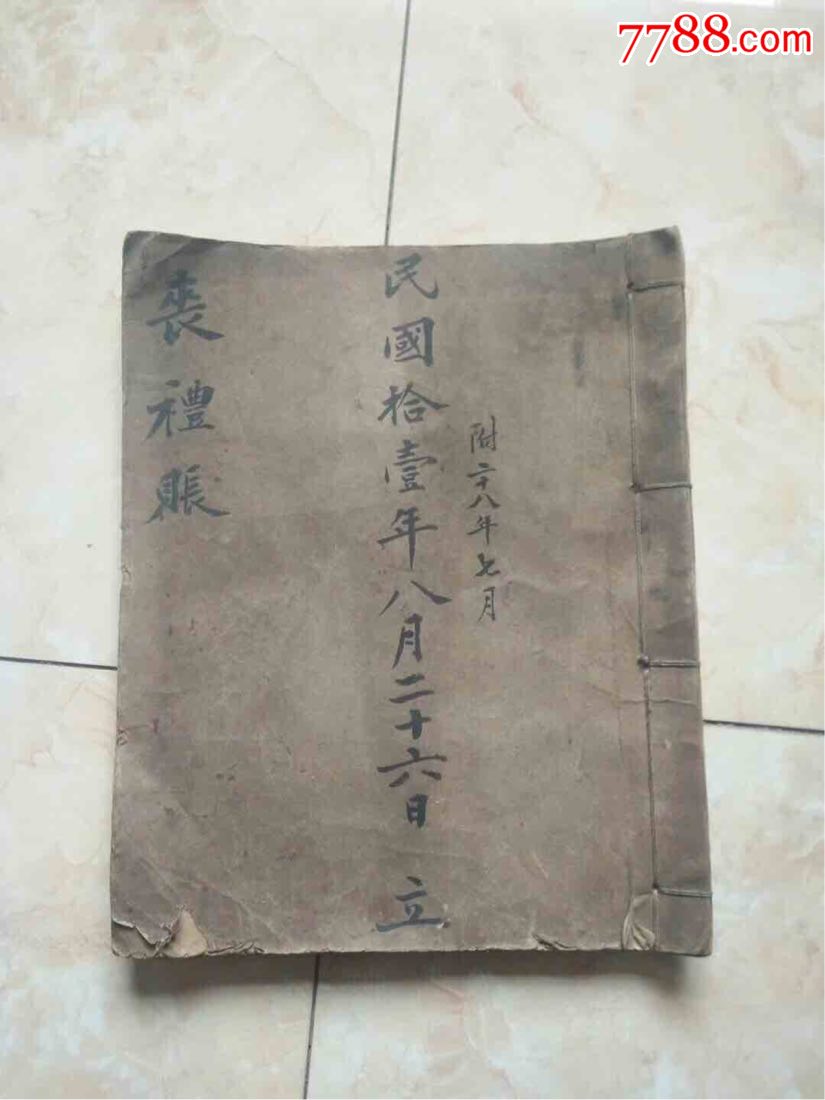 7788.com
附二十八年七月
民國拾壹年八月二十六日 立
喪禮賬